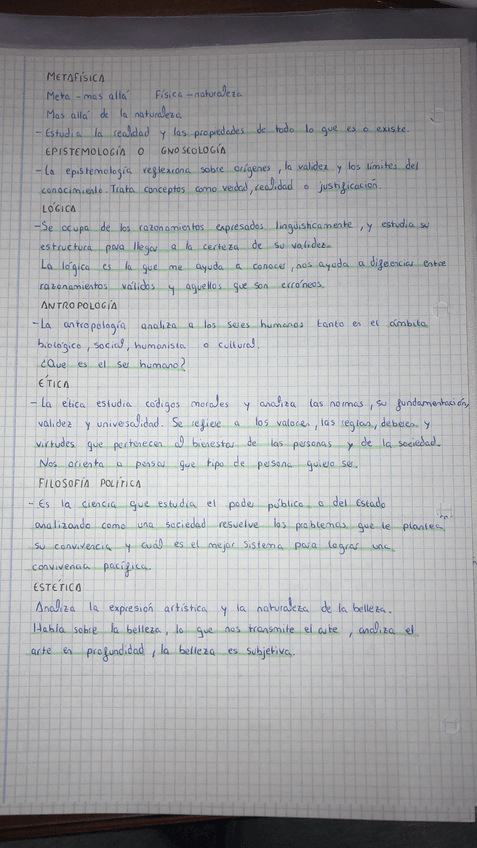 METAFÍSICA
Meta - mas allá Física - naturaleza
Mas allá de la naturaleza
- Estudia la realidad y las propiedades de todo lo que es o existe.
EPISTEMOLOGÍA O GNOSEOLOGÍA
- La epistemología reflexiona sobre orígenes, la validez y los límites del
conocimiento. Trata conceptos como verdad, realidad o justificación.
LÓGICA
- Se ocupa de los razonamientos expresados lingüísticamente, y estudia su
estructura para llegar a la certeza de su validez.
La lógica es la que me ayuda a conocer, nos ayuda a diferenciar entre
razonamientos válidos y aquellos que son erróneos.
ANTROPOLOGÍA
- La antropología analiza a los seres humanos tanto en el ámbito
biológico, social, humanista o cultural.
¿Que es el ser humano?
ÉTICA
- La ética estudia códigos morales y analiza las normas, su fundamentación,
validez y universalidad. Se refiere a los valores, las reglas, deberes y
virtudes que pertenecen al bienestar de las personas y de la sociedad.
Nos orienta a pensar que tipo de persona quiero ser.
FILOSOFÍA POLÍTICA
- Es la ciencia que estudia el poder público o del Estado
analizando como una sociedad resuelve los problemas que le plantea
su convivencia y cuál es el mejor sistema para lograr una
convivencia pacífica.
ESTÉTICA
Analiza la expresión artística y la naturaleza de la belleza.
Habla sobre la belleza, lo que nos transmite el arte, analiza el
arte en profundidad, la belleza es subjetiva.